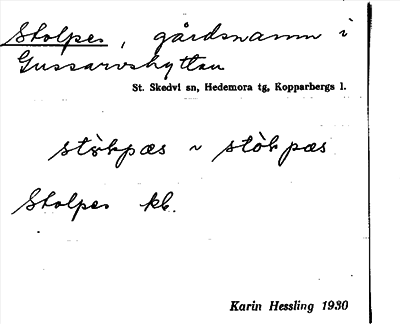 Stolpes, gårdsnamn i
Gussarvshyttan
St. Skedvi sn, Hedemora tg, Kopparbergs l.
stòkpæs ~ stòkpæs
Stolpes kb.
Karin Hessling 1930